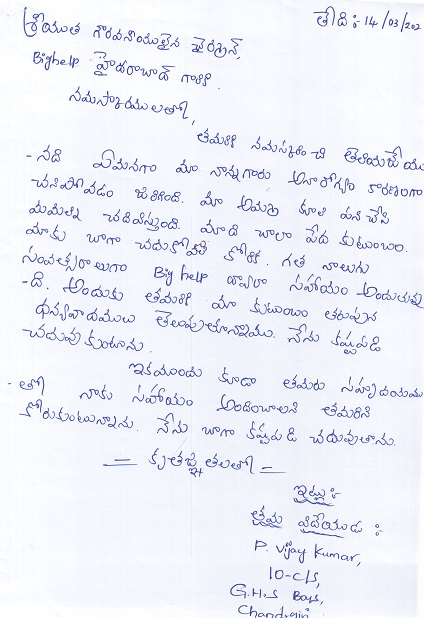 తేది :- 14/03/202
శ్రీయుత గౌరవనీయులైన చైర్మన్,
Bighelp హైదరాబాద్ గారికి
నమస్కారములతో,
తమరికి నమస్కరించి తెలియజేయు
-నది ఏమనగా మా నాన్నగారు అనారోగ్యం కారణంగా
చనిపోవడం జరిగింది. మా అమ్మ కూలి పని చేసి
మమల్ని చదివిస్తుంది. మాది చాలా పేద కుటుంబం.
మాకు బాగా చదుకోవాలి కోరిక. గత నాలుగు
సంవత్సరాలుగా Big help ద్వారా సహాయం అందుతువు
-ది. అందుకు తమరికి మా కుటుంబం తరుపున
ధన్యవాదములు తెలుపుతూన్నాము. నేను కష్టపడి
చదువుకుంటాను.
ఇకముందు కూడా తమరు సహృదయము
-తో నాకు సహాయం అందించాలని తమరిని
కోరుకుంటున్నాను. నేను బాగా కష్టపడి చదువుతాను.
— కృతజ్ఞతలతో —
ఇట్లు :-
తమ విదేయుడు :-
P. Vijay Kumar,
10-C/S,
G.H.S Boys,
Chandragiri